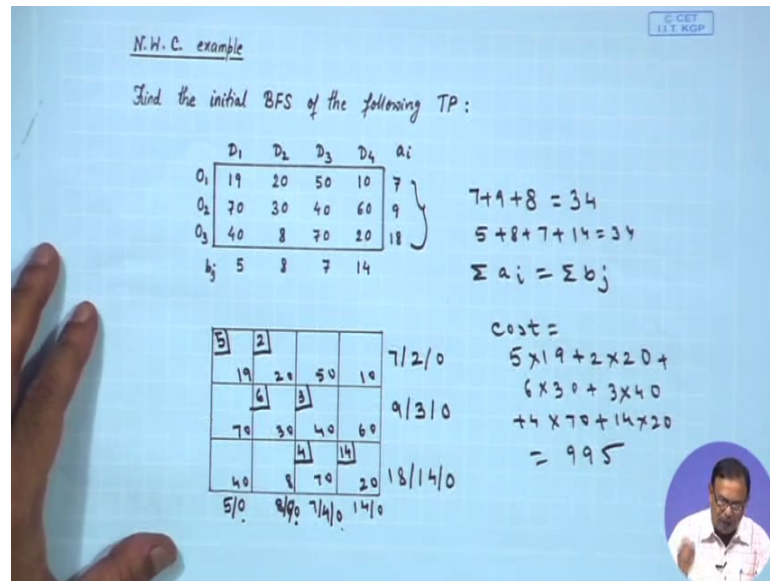 © CET
I.I.T. KGP
N.W.C. example
Find the initial BFS of the following TP:
D1 D2 D3 D4 ai
O1 19 20 50 10 7
O2 70 30 40 60 9
O3 40 8 70 20 18
bj 5 8 7 14
7+9+8 = 34
5+8+7+14=34
Σ ai = Σ bj
5 2
19 20 50 10 7/2/0
6 3
70 30 40 60 9/3/0
4 14
40 8 70 20 18/14/0
5/0 8/6/0 7/4/0 14/0
cost =
5×19+2×20+
6×30+3×40
+4×70+14×20
= 995